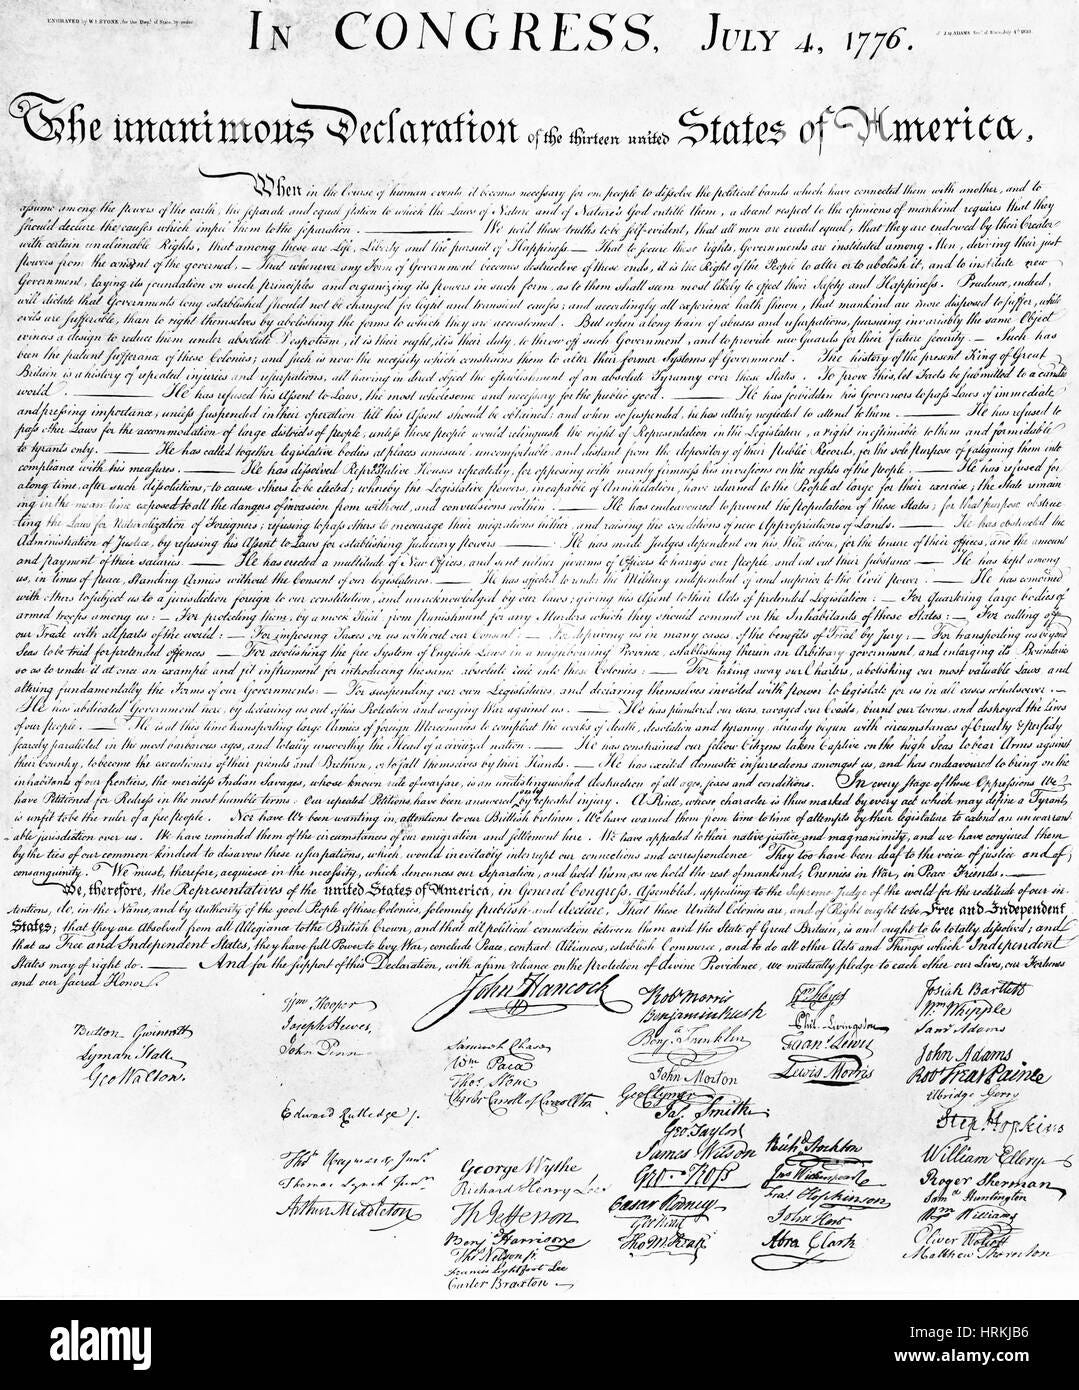 ENGRAVED by W.I. STONE, for the Dep.t of State, by order
IN CONGRESS, JULY 4, 1776.
The unanimous Declaration of the thirteen united States of America,
When in the Course of human events it becomes necessary for one people to dissolve the political bands which have connected them with another, and to
assume among the powers of the earth, the separate and equal station to which the Laws of Nature and of Nature's God entitle them, a decent respect to the opinions of mankind requires that they
should declare the causes which impel them to the separation. ——— We hold these truths to be self-evident, that all men are created equal, that they are endowed by their Creator
with certain unalienable Rights, that among these are Life, Liberty and the pursuit of Happiness.— That to secure these rights, Governments are instituted among Men, deriving their just
powers from the consent of the governed, — That whenever any Form of Government becomes destructive of these ends, it is the Right of the People to alter or to abolish it, and to institute new
Government, laying its foundation on such principles and organizing its powers in such form, as to them shall seem most likely to effect their Safety and Happiness. Prudence, indeed,
will dictate that Governments long established should not be changed for light and transient causes; and accordingly all experience hath shewn, that mankind are more disposed to suffer, while
evils are sufferable, than to right themselves by abolishing the forms to which they are accustomed. But when a long train of abuses and usurpations, pursuing invariably the same Object
evinces a design to reduce them under absolute Despotism, it is their right, it is their duty, to throw off such Government, and to provide new Guards for their future security.— Such has
been the patient sufferance of these Colonies; and such is now the necessity which constrains them to alter their former Systems of Government. The history of the present King of Great
Britain is a history of repeated injuries and usurpations, all having in direct object the establishment of an absolute Tyranny over these States. To prove this, let Facts be submitted to a candid
world. ——— He has refused his Assent to Laws, the most wholesome and necessary for the public good. ——— He has forbidden his Governors to pass Laws of immediate
and pressing importance, unless suspended in their operation till his Assent should be obtained; and when so suspended, he has utterly neglected to attend to them. ——— He has refused to
pass other Laws for the accommodation of large districts of people, unless those people would relinquish the right of Representation in the Legislature, a right inestimable to them and formidable
to tyrants only. ——— He has called together legislative bodies at places unusual, uncomfortable, and distant from the depository of their public Records, for the sole purpose of fatiguing them into
compliance with his measures. ——— He has dissolved Representative Houses repeatedly, for opposing with manly firmness his invasions on the rights of the people. ——— He has refused for
a long time, after such dissolutions, to cause others to be elected; whereby the Legislative powers, incapable of Annihilation, have returned to the People at large for their exercise; the State remain
ing in the mean time exposed to all the dangers of invasion from without, and convulsions within. ——— He has endeavoured to prevent the population of these States; for that purpose obstruc
ting the Laws for Naturalization of Foreigners; refusing to pass others to encourage their migrations hither, and raising the conditions of new Appropriations of Lands. ——— He has obstructed the
Administration of Justice, by refusing his Assent to Laws for establishing Judiciary powers. ——— He has made Judges dependent on his Will alone, for the tenure of their offices, and the amount
and payment of their salaries. ——— He has erected a multitude of New Offices, and sent hither swarms of Officers to harrass our People, and eat out their substance. ——— He has kept among
us, in times of peace, Standing Armies without the Consent of our legislatures. ——— He has affected to render the Military independent of and superior to the Civil power. ——— He has combined
with others to subject us to a jurisdiction foreign to our constitution, and unacknowledged by our laws; giving his Assent to their Acts of pretended Legislation: — For Quartering large bodies of
armed troops among us: — For protecting them, by a mock Trial, from punishment for any Murders which they should commit on the Inhabitants of these States: — For cutting off
our Trade with all parts of the world: — For imposing Taxes on us without our Consent: — For depriving us in many cases, of the benefits of Trial by Jury: — For transporting us beyond
Seas to be tried for pretended offences — For abolishing the free System of English Laws in a neighbouring Province, establishing therein an Arbitrary government, and enlarging its Boundaries
so as to render it at once an example and fit instrument for introducing the same absolute rule into these Colonies: — For taking away our Charters, abolishing our most valuable Laws, and
altering fundamentally the Forms of our Governments: — For suspending our own Legislatures, and declaring themselves invested with power to legislate for us in all cases whatsoever. —
He has abdicated Government here, by declaring us out of his Protection and waging War against us. ——— He has plundered our seas, ravaged our Coasts, burnt our towns, and destroyed the Lives
of our people. ——— He is at this time transporting large Armies of foreign Mercenaries to compleat the works of death, desolation and tyranny, already begun with circumstances of Cruelty & perfidy
scarcely paralleled in the most barbarous ages, and totally unworthy the Head of a civilized nation. ——— He has constrained our fellow Citizens taken Captive on the high Seas to bear Arms against
their Country, to become the executioners of their friends and Brethren, or to fall themselves by their Hands. ——— He has excited domestic insurrections amongst us, and has endeavoured to bring on the
inhabitants of our frontiers, the merciless Indian Savages, whose known rule of warfare, is an undistinguished destruction of all ages, sexes and conditions. In every stage of these Oppressions We
have Petitioned for Redress in the most humble terms: Our repeated Petitions have been answered only by repeated injury. A Prince, whose character is thus marked by every act which may define a Tyrant,
is unfit to be the ruler of a free people. Nor have We been wanting in attentions to our Brittish brethren. We have warned them from time to time of attempts by their legislature to extend an unwarrant
able jurisdiction over us. We have reminded them of the circumstances of our emigration and settlement here. We have appealed to their native justice and magnanimity, and we have conjured them
by the ties of our common kindred to disavow these usurpations, which, would inevitably interrupt our connections and correspondence. They too have been deaf to the voice of justice and of
consanguinity. We must, therefore, acquiesce in the necessity, which denounces our Separation, and hold them, as we hold the rest of mankind, Enemies in War, in Peace Friends. ———
We, therefore, the Representatives of the united States of America, in General Congress, Assembled, appealing to the Supreme Judge of the world for the rectitude of our in
tentions, do, in the Name, and by Authority of the good People of these Colonies, solemnly publish and declare, That these United Colonies are, and of Right ought to be Free and Independent
States; that they are Absolved from all Allegiance to the British Crown, and that all political connection between them and the State of Great Britain, is and ought to be totally dissolved; and
that as Free and Independent States, they have full Power to levy War, conclude Peace, contract Alliances, establish Commerce, and to do all other Acts and Things which Independent
States may of right do. ——— And for the support of this Declaration, with a firm reliance on the protection of divine Providence, we mutually pledge to each other our Lives, our Fortunes
and our sacred Honor.
Button Gwinnett
Lyman Hall
Geo Walton.
Wm Hooper
Joseph Hewes,
John Penn
Edward Rutledge
Thos Heyward Junr.
Thomas Lynch Junr.
Arthur Middleton
John Hancock
Samuel Chase
Wm Paca
Thos Stone
Charles Carroll of Carrollton
George Wythe
Richard Henry Lee
Th Jefferson
Benj Harrison
Thos Nelson jr
Francis Lightfoot Lee
Carter Braxton
Robt Morris
Benjamin Rush
Benj Franklin
John Morton
Geo Clymer
Jas Smith
Geo Taylor
James Wilson
Geo Ross
Caesar Rodney
Geo Read
Tho M:Kean
Wm Floyd
Phil. Livingston
Frans Lewis
Lewis Morris
Richd Stockton
Jno Witherspoon
Fras Hopkinson
John Hart
Abra Clark
Josiah Bartlett
Wm Whipple
Saml Adams
John Adams
Robt Treat Paine
Elbridge Gerry
Step. Hopkins
William Ellery
Roger Sherman
Saml Huntington
Wm Williams
Oliver Wolcott
Matthew Thornton
alamy stock photo
HRKJB6
www.alamy.com